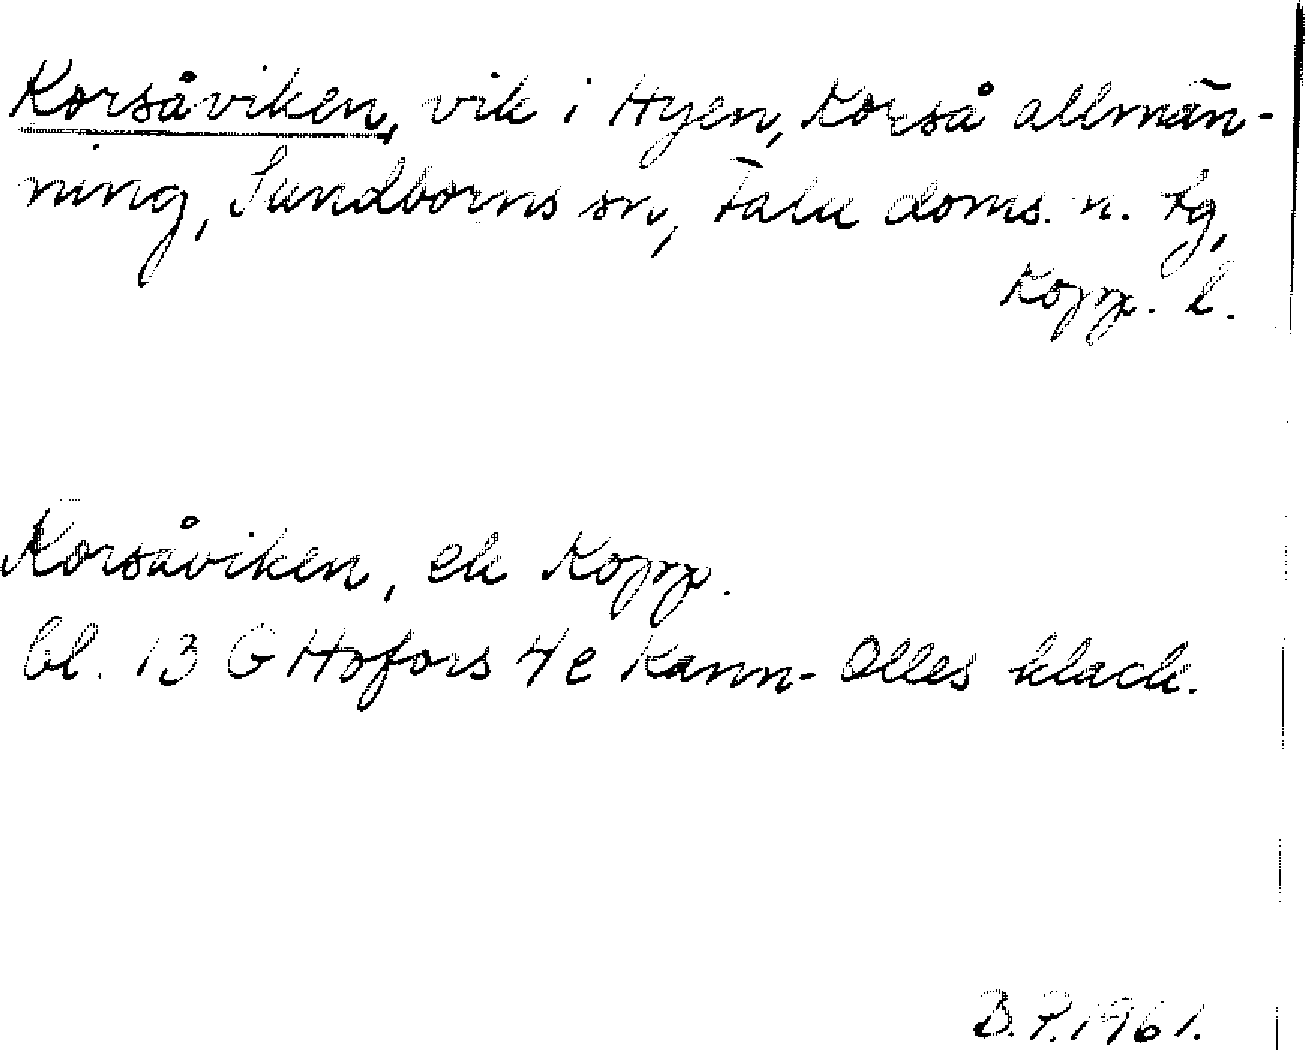 Korsåviken, vik i Hyen, Korså allmän-
ning, Sundborns sn, Falu doms. n. tg,
Kopp. l.
Korsåviken, ek Kopp.
bl. 13 G Hofors 4e Kann-Olles klack.
B.P. 1961.